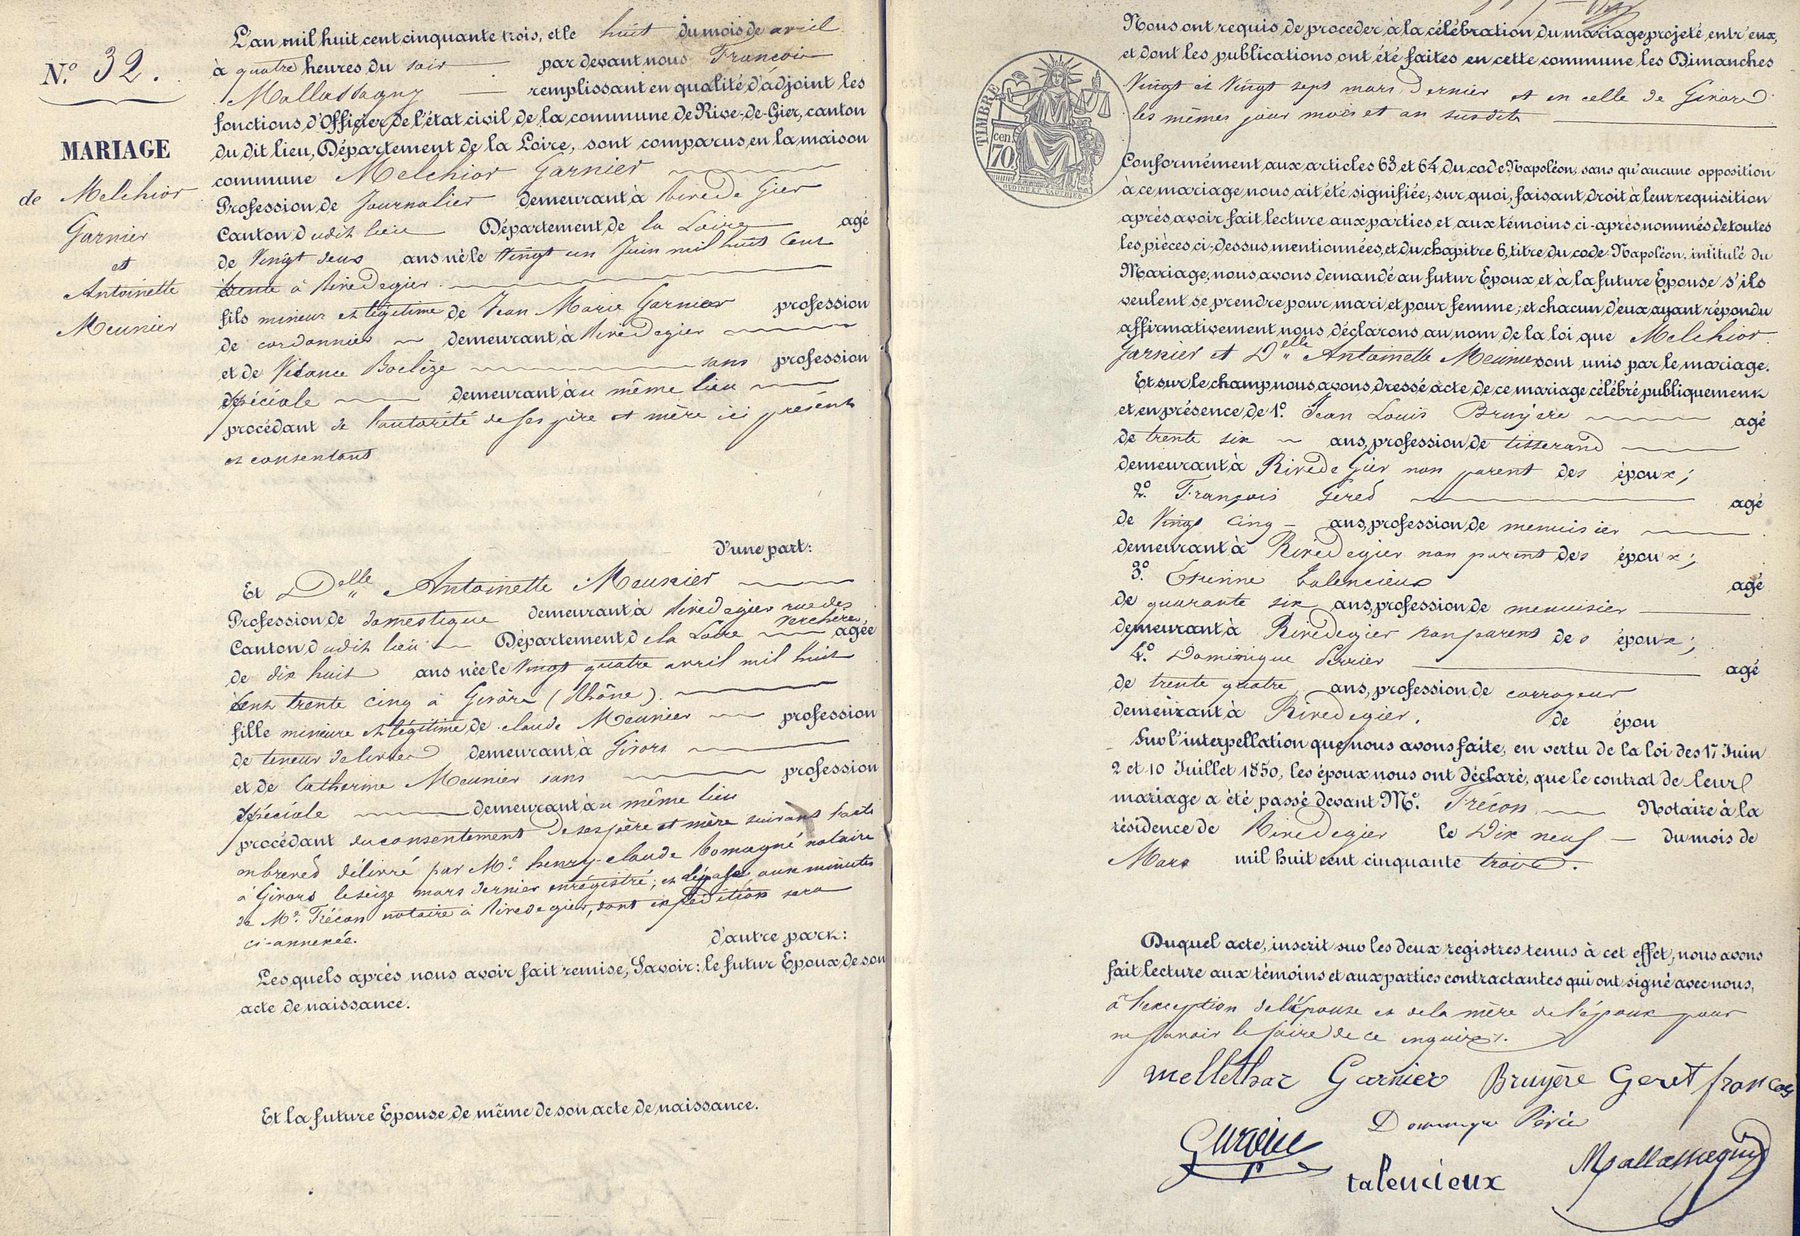 N.º 32.
MARIAGE
de Melchior
Garnier
et
Antoinette
Meunier
L'an mil huit cent cinquante trois, et le huit du mois de avril
à quatre heures du soir par devant nous François
Mallassagny remplissant en qualité d'adjoint les
fonctions d'Officier de l'état civil de la commune de Rive-de-Gier, canton
du dit lieu, Département de la Loire, sont comparus en la maison
commune Melchior Garnier
Profession de Journalier demeurant à Rive de Gier
Canton dudit lieu Département de la Loire agé
de Vingt deux ans né le Vingt un Juin mil huit Cent
trente à Rivedegier.
fils mineur et légitime de Jean Marie Garnier profession
de cordonnier demeurant à Rivedegier
et de sans profession
spéciale demeurant au même lieu
procédant de l'autorité de ses père et mère ici présents
et consentant
D'une part:
Et Delle Antoinette Meunier
Profession de domestique demeurant à Rivedegier rue des
Verchères
Canton dudit lieu Département de la Loire agée
de dix huit ans née le Vingt quatre avril mil huit
Cent trente cinq à Givors (Rhône).
fille mineure et légitime de Claude Meunier profession
de teneur de livres demeurant à Givors
et de Catherine Meunier sans profession
spéciale demeurant au même lieu
procédant du consentement de ses père et mère suivant acte
en brevet délivré par Me. henry-claude notaire
à Givors le seize mars dernier enrégistré; et déposé aux minutes
de Me. Frécon notaire à Rivedegier, dont expédition sera
ci-annexée.
D'autre part:
Les quels après nous avoir fait remise, Savoir: le futur Epoux de son
acte de naissance.
Et la future Epouse de même de son acte de naissance.
Nous ont requis de procéder à la célébration du mariage projeté entr'eux,
et dont les publications ont été faites en cette commune les Dimanches
Vingt et Vingt sept mars dernier et en celle de Givors
les mêmes jour mois et an susdits
TIMBRE
cen.
70
Conformément aux articles 63 et 64 du code Napoléon, sans qu'aucune opposition
à ce mariage nous ait été signifiée; sur quoi, faisant droit à leur requisition
après avoir fait lecture aux parties et aux témoins ci-après nommés de toutes
les pièces ci-dessus mentionnées, et du chapitre 6, titre du code Napoléon, intitulé du
Mariage, nous avons demandé au futur Epoux et à la future Epouse s'ils
veulent se prendre pour mari et pour femme; et chacun d'eux ayant répondu
affirmativement nous déclarons au nom de la loi que Melchior
Garnier et Delle Antoinette Meunier sont unis par le mariage.
Et sur le champ nous avons dressé acte de ce mariage célébré publiquement
et en présence de 1.º Jean Louis Bruyère agé
de trente six ans, profession de tisserand
demeurant à Rive de Gier non parent des époux;
2.º François Geret agé
de Vingt Cinq ans, profession de menuisier
demeurant à Rivedegier non parent des époux;
3.º Etienne Talencieux agé
de quarante six ans, profession de menuisier
demeurant à Rivedegier non parent des époux;
4.º Dominique Perrier agé
de trente quatre ans, profession de corroyeur
demeurant à Rivedegier. de épou
Sur l'interpellation que nous avons faite, en vertu de la loi des 17 Juin
2 et 10 Juillet 1850, les époux nous ont déclaré, que le contrat de leur
mariage a été passé devant Me. Frécon Notaire à la
résidence de Rivedegier le Dix neuf du mois de
Mars mil huit cent cinquante trois.
Duquel acte, inscrit sur les deux registres tenus à cet effet, nous avons
fait lecture aux témoins et aux parties contractantes qui ont signé avec nous,
à l'exception de l'épouse et de la mère de l'époux pour
ne savoir le faire de ce enquis.
Garnier Bruyère Geret françois
talencieux
Mallassagny